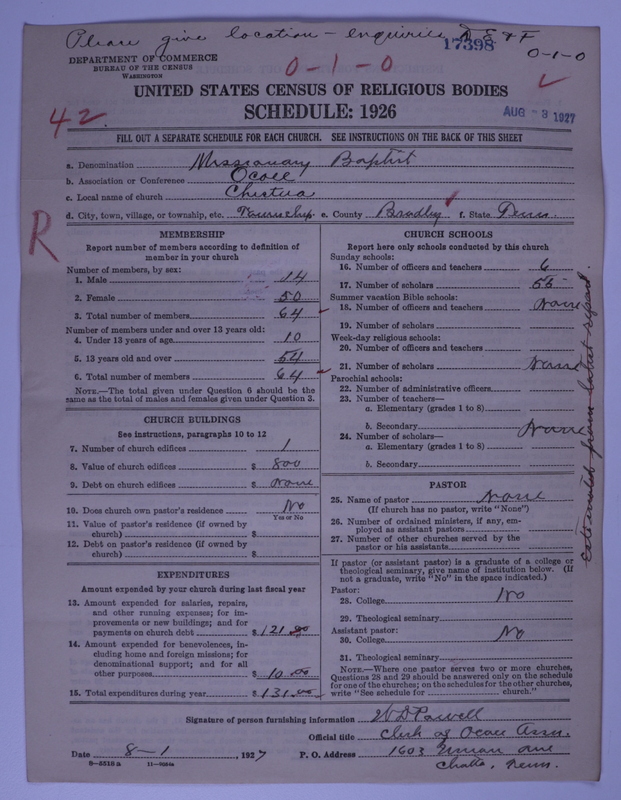 Please give location - enquiries D, E & F
17398
0-1-0
DEPARTMENT OF COMMERCE
BUREAU OF THE CENSUS
WASHINGTON
0-1-0
UNITED STATES CENSUS OF RELIGIOUS BODIES
42
SCHEDULE: 1926
AUG -3 1927
FILL OUT A SEPARATE SCHEDULE FOR EACH CHURCH. SEE INSTRUCTIONS ON THE BACK OF THIS SHEET
a. Denomination Missionary Baptist
b. Association or Conference Ocoee
c. Local name of church
d. City, town, village, or township, etc. Township e. County Bradley f. State Tenn.
R
MEMBERSHIP
Report number of members according to definition of
member in your church
Number of members, by sex:
1. Male 14
2. Female 50
3. Total number of members 64
Number of members under and over 13 years old:
4. Under 13 years of age 10
5. 13 years old and over 54
6. Total number of members 64
NOTE.—The total given under Question 6 should be the
same as the total of males and females given under Question 3.
CHURCH BUILDINGS
See instructions, paragraphs 10 to 12
7. Number of church edifices 1
8. Value of church edifices $ 800
9. Debt on church edifices $ None
10. Does church own pastor's residence No
Yes or No
11. Value of pastor's residence (if owned by
church) $
12. Debt on pastor's residence (if owned by
church) $
EXPENDITURES
Amount expended by your church during last fiscal year
13. Amount expended for salaries, repairs,
and other running expenses; for im-
provements or new buildings; and for
payments on church debt $ 121.00
14. Amount expended for benevolences, in-
cluding home and foreign missions; for
denominational support; and for all
other purposes $ 10.00
15. Total expenditures during year $ 131.00
CHURCH SCHOOLS
Report here only schools conducted by this church
Sunday schools:
16. Number of officers and teachers 6
17. Number of scholars 55
Summer vacation Bible schools:
18. Number of officers and teachers None
19. Number of scholars
Week-day religious schools:
20. Number of officers and teachers
21. Number of scholars None
Parochial schools:
22. Number of administrative officers
23. Number of teachers—
a. Elementary (grades 1 to 8)
b. Secondary None
24. Number of scholars—
a. Elementary (grades 1 to 8)
b. Secondary
PASTOR
25. Name of pastor None
(If church has no pastor, write "None")
26. Number of ordained ministers, if any, em-
ployed as assistant pastors
27. Number of other churches served by the
pastor or his assistants
If pastor (or assistant pastor) is a graduate of a college or
theological seminary, give name of institution below. (If
not a graduate, write "No" in the space indicated.)
Pastor:
28. College No
29. Theological seminary
Assistant pastor:
30. College No
31. Theological seminary
NOTE.—Where one pastor serves two or more churches,
Questions 28 and 29 should be answered only on the schedule
for one of the churches; on the schedules for the other churches,
write "See schedule for church."
from latest
Signature of person furnishing information W D Powell
Official title Clerk of Ocoee Assn.
Date 8-1, 1927 P. O. Address 1603 Union ave
Chatta, Tenn.
8-5518 a